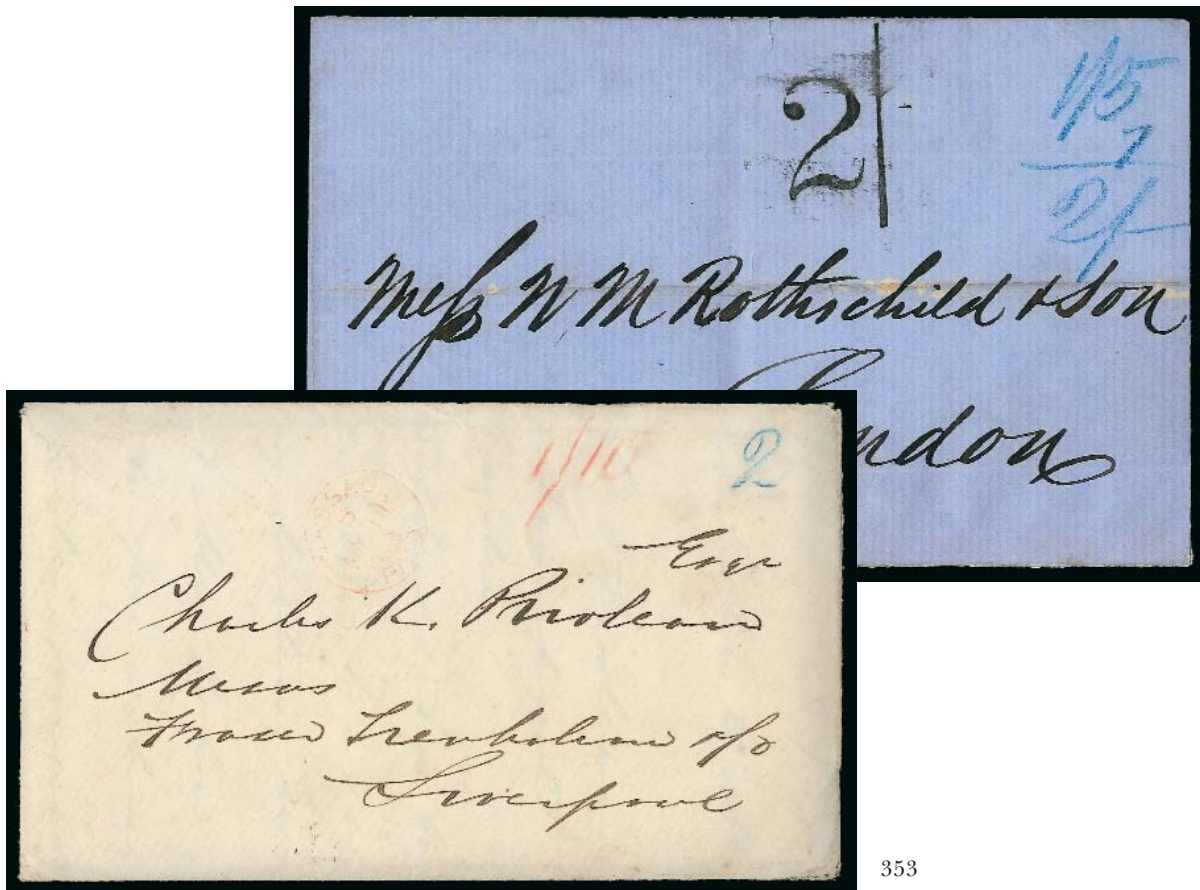 2/
1/5
7
2/
Mess N M Rothschild & Son
London
1/10
2
Esqr
Charles K. Prioleau
Messrs
Fraser Trenholm & Co
Liverpool
353